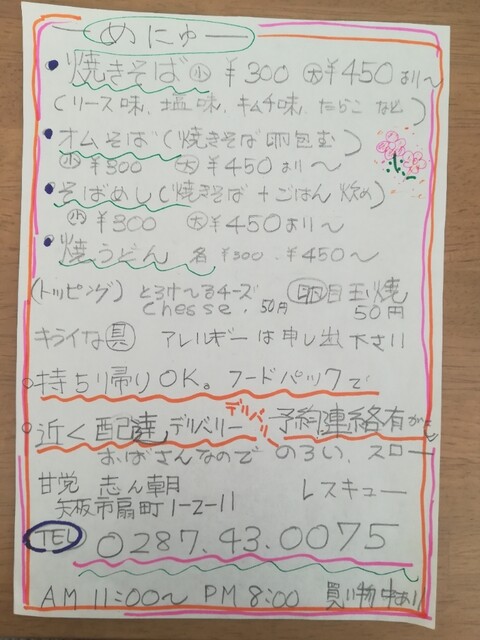 めにゅー
焼きそば 小 ¥300 大 ¥450より～
(ソース味、塩味、キムチ味、たらこ など)
オムそば(焼きそば 卵包む)
小 ¥300 大 ¥450より～
そばめし(焼きそば+ごはん 炒め)
小 ¥300 大 ¥450より～
焼うどん 各 ¥300、¥450～
(トッピング) とろけ～るチーズ 卵目玉焼
Chesse、50円 50円
キライな具 アレルギーは申し出下さい
持ち帰りOK。フードパックで
デルバリー
近く配達デルベリー 予約連絡有がも
おばさんなので のろい、スロー
甘党 志ん朝 レスキュー
矢板市扇町1-2-11
TEL 0287.43.0075
AM 11:00～ PM 8:00 買い物中あり